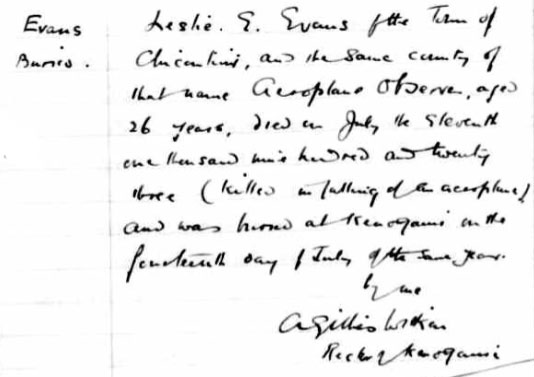 Evans
Buried.
Leslie. E. Evans of the Town of
Chicoutimi, and the same county of
that name Aeroplane Observer, aged
26 years, died on July the Eleventh
one thousand nine hundred and twenty
three (killed in falling of an aeroplane)
and was buried at Kenogami on the
fourteenth day of July of the same year.
by me
A Gillis
Rector of Kenogami